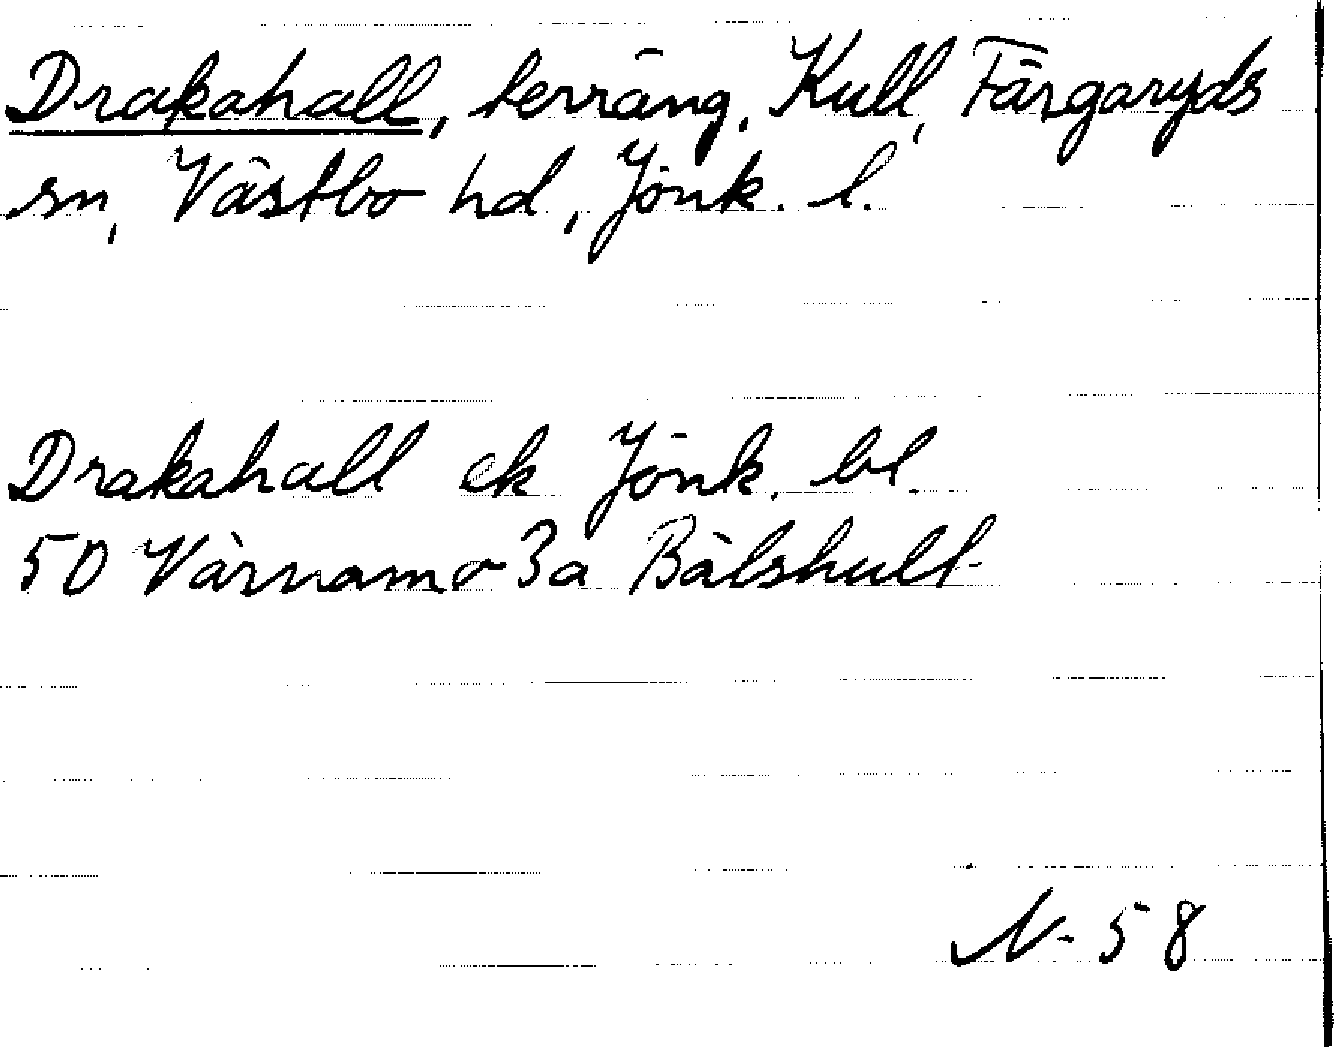 Drakahall, terräng, Kull, Färgaryds
sn, Västbo hd, Jönk. l.
Drakahall ek Jönk. bl.
50 Värnamo 3a Bälshult
N-58